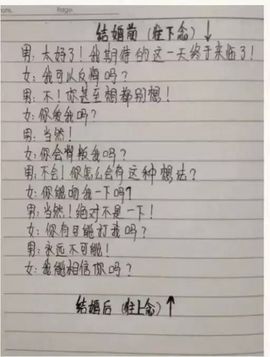 结婚前（往下念）↓
男：太好了！我期待的这一天终于来临了！
女：我可以反悔吗？
男：不！你甚至想都别想！
女：你爱我吗？
男：当然！
女：你会背叛我吗？
男：不会！你怎么会有这种想法？
女：你能吻我一下吗？
男：当然！绝对不是一下！
女：你有可能打我吗？
男：永远不可能！
女：我能相信你吗？
结婚后（往上念）↑